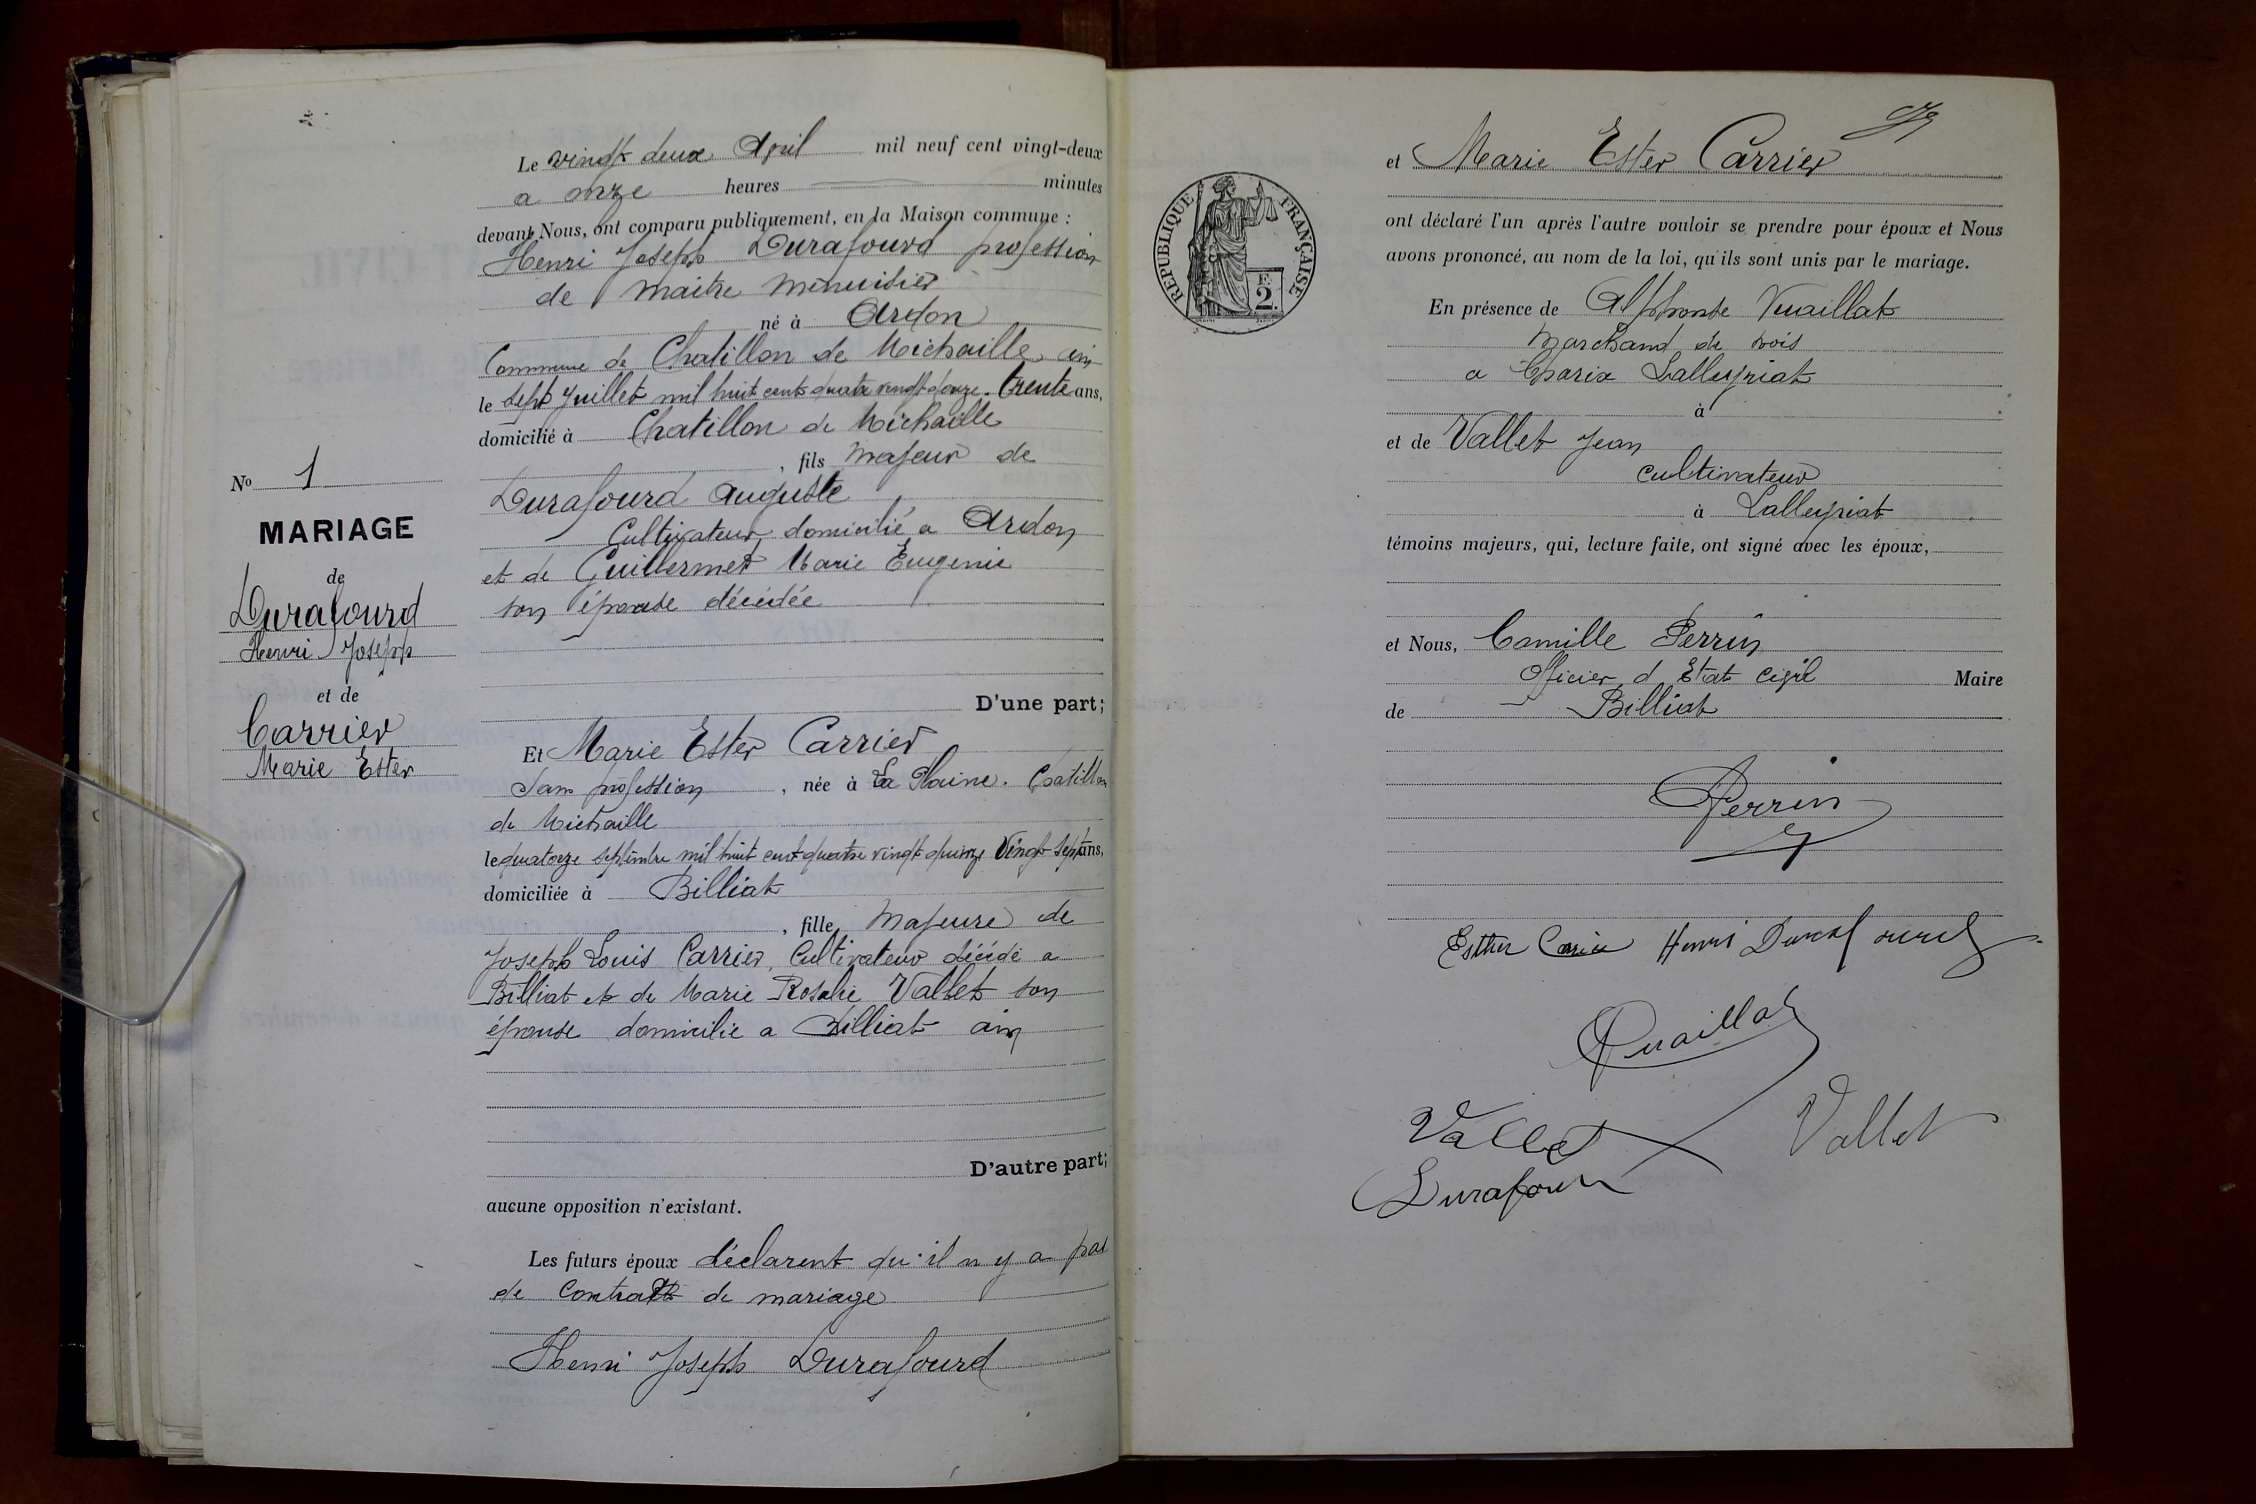 Le vingt deux April mil neuf cent vingt-deux
a onze heures minutes
devant Nous, ont comparu publiquement, en la Maison commune :
Henri Joseph Durafourd profession
de maitre menuisier
né à Ardon
Commune de Chatillon de Michaille ain
le sept juillet mil huit cents quatre vingt douze. trente ans,
domicilié à Chatillon de Michaille
, fils majeur de
Durafourd Auguste
Cultivateur, domicilié a Ardon
et de Guillermet Marie Eugenie
son épouse décédée
D'une part;
No 1
MARIAGE
de
Durafourd
Henri Joseph
et de
Carrier
Marie Ester
Et Marie Ester Carrier
Sans profession , née à La Plaine. Chatillon
de Michaille
le quatorze septembre mil huit cent quatre vingt quinze Vingt sept ans,
domiciliée à Billiat
, fille Majeure de
Joseph Louis Carrier, Cultivateur décédé a
Billiat et de Marie Rosalie Vallet son
épouse domicilie a Billiat ain
D'autre part;
aucune opposition n'existant.
Les futurs époux déclarent qu'il n y a pas
de contrat de mariage
Henri Joseph Durafourd
et Marie Ester Carrier
RÉPUBLIQUE FRANÇAISE
F.
2.
ont déclaré l'un après l'autre vouloir se prendre pour époux et Nous
avons prononcé, au nom de la loi, qu'ils sont unis par le mariage.
En présence de Alphonse Vuaillat
Marchand de bois
a Charix Lalleyriat
à
et de Vallet Jean
cultivateur
à Lalleyriat
témoins majeurs, qui, lecture faite, ont signé avec les époux,
et Nous, Camille Perrin
Officier d Etat Civil Maire
de Billiat
Perrin
Esther Carrier Henri Durafourd
Vuaillat
Vallet Vallet
Durafour